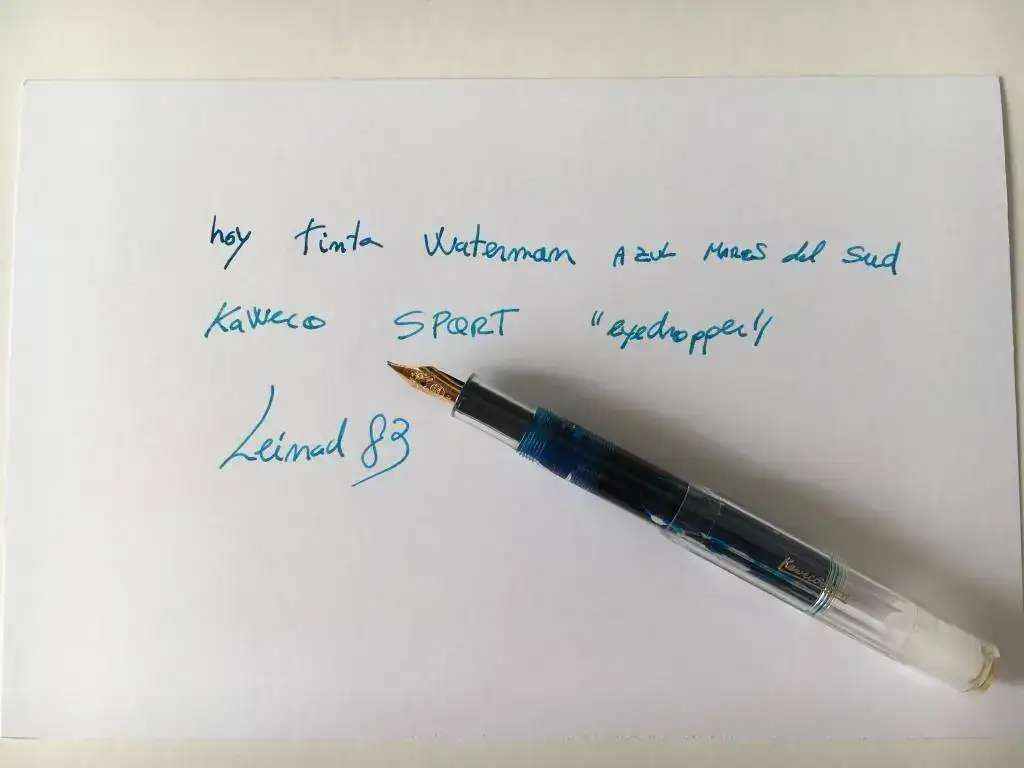 hoy tinta Waterman AZUL MARES del Sud
Kaweco SPORT "eyedropper"
Leinad 83
Kaweco